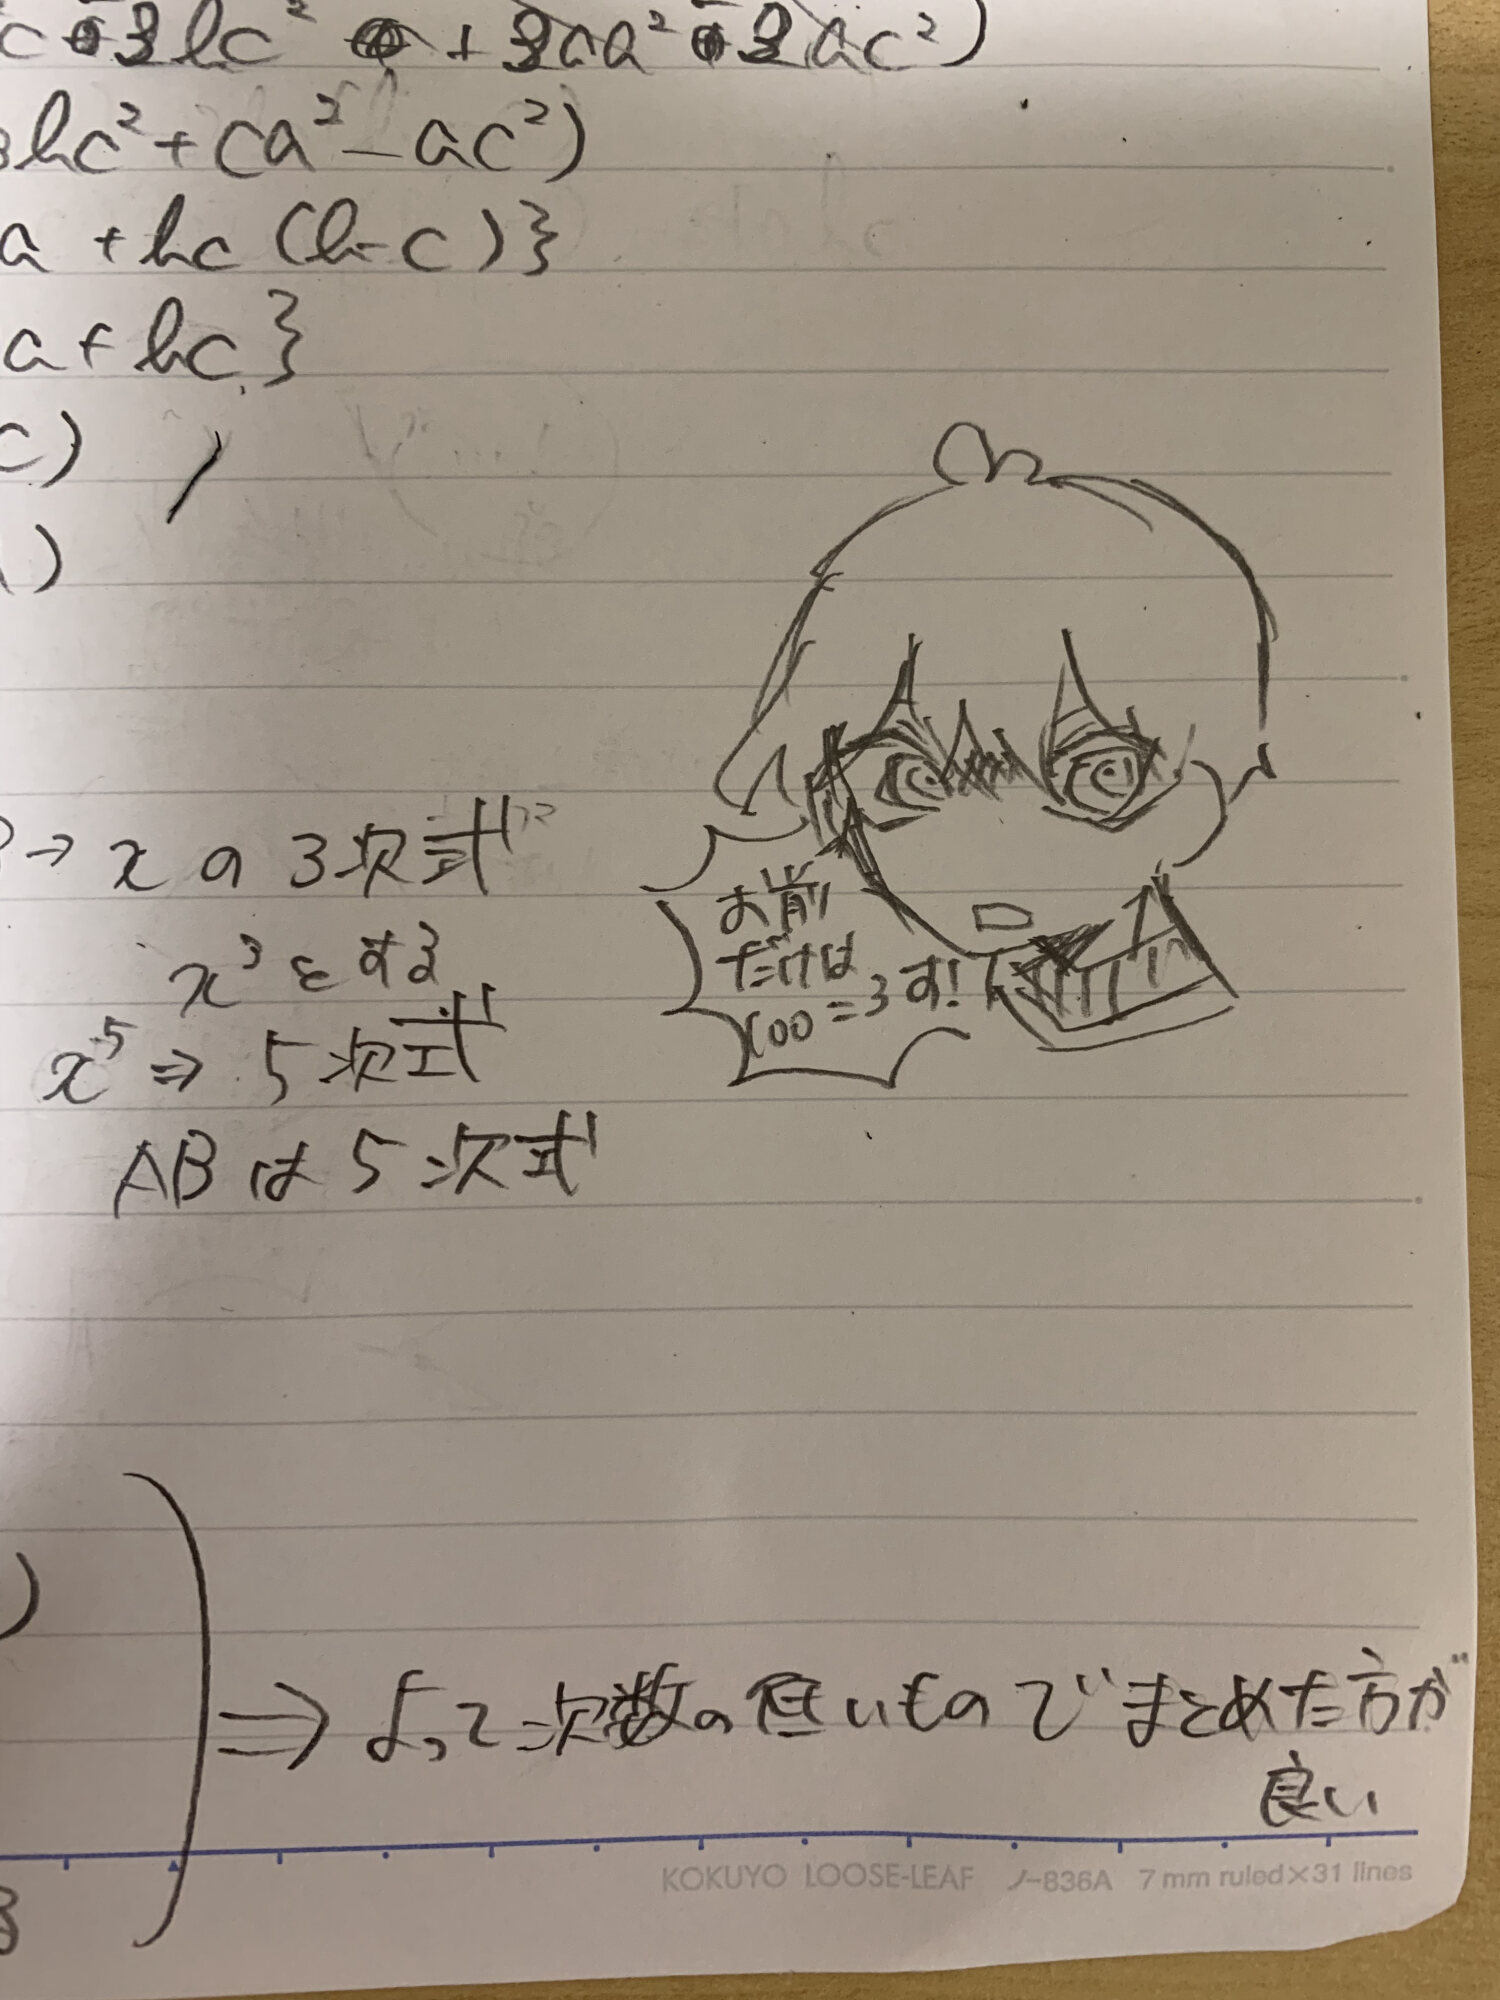 bc² + ca² - ac²)
a + bc (b-c)}
a + bc}
c)
)
→ xの3次式
x³とする
x⁵ ⇒ 5次式
ABは5次式
お前
だけは
=3す!
)
⇒ よって次数の低いものでまとめた方が
良い
KOKUYO LOOSE-LEAF ノ-836A 7 mm ruled×31 lines